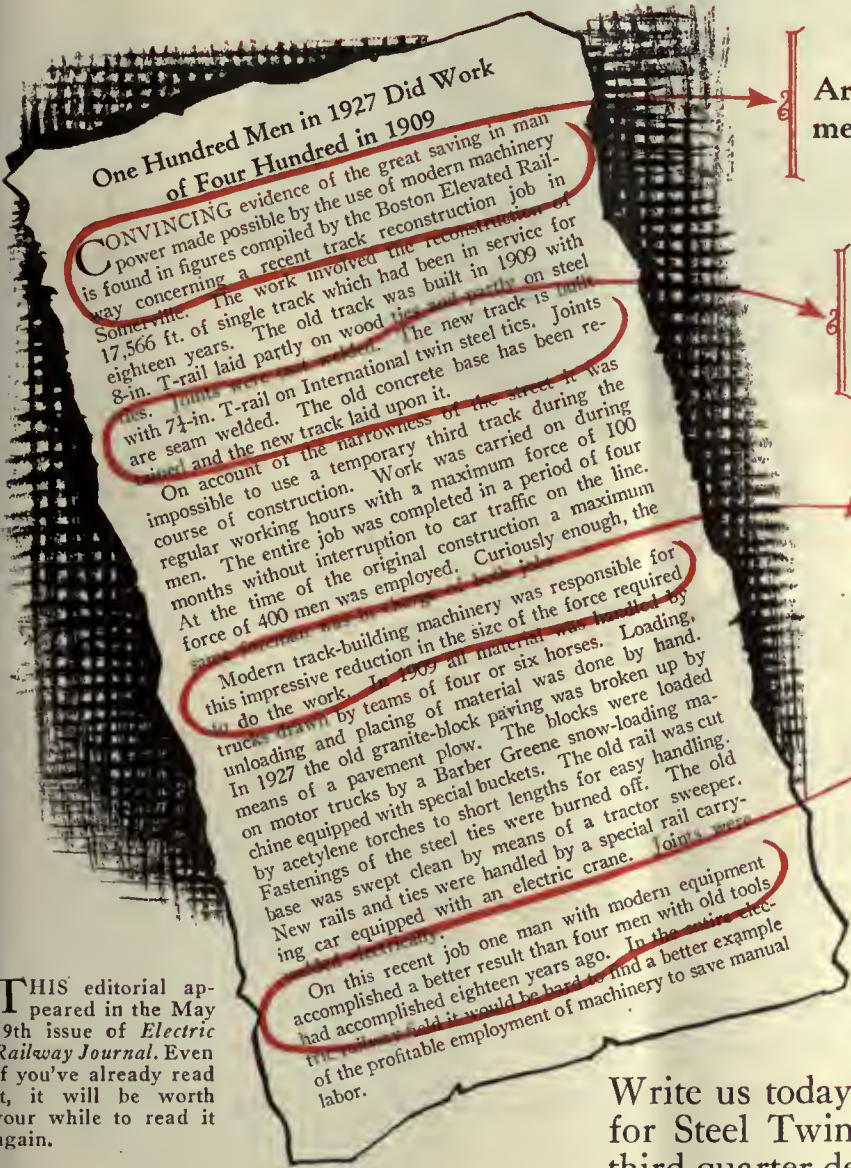 One Hundred Men in 1927 Did Work
of Four Hundred in 1909
CONVINCING evidence of the great saving in man
power made possible by the use of modern machinery
is found in figures compiled by the Boston Elevated Rail-
way concerning a recent track reconstruction job in
Somerville. The work involved the reconstruction of
17,566 ft. of single track which had been in service for
eighteen years. The old track was built in 1909 with
8-in. T-rail laid partly on wood ties and partly on steel
ties. Joints were cast welded. The new track is built
with 7¼-in. T-rail on International twin steel ties. Joints
are seam welded. The old concrete base has been re-
tained and the new track laid upon it.
On account of the narrowness of the street it was
impossible to use a temporary third track during the
course of construction. Work was carried on during
regular working hours with a maximum force of 100
men. The entire job was completed in a period of four
months without interruption to car traffic on the line.
At the time of the original construction a maximum
force of 400 men was employed. Curiously enough, the
same foreman was in charge of both jobs.
Modern track-building machinery was responsible for
this impressive reduction in the size of the force required
to do the work. In 1909 all material was handled by
trucks drawn by teams of four or six horses. Loading,
unloading and placing of material was done by hand.
In 1927 the old granite-block paving was broken up by
means of a pavement plow. The blocks were loaded
on motor trucks by a Barber Greene snow-loading ma-
chine equipped with special buckets. The old rail was cut
by acetylene torches to short lengths for easy handling.
Fastenings of the steel ties were burned off. The old
base was swept clean by means of a tractor sweeper.
New rails and ties were handled by a special rail carry-
ing car equipped with an electric crane. Joints were
welded electrically.
On this recent job one man with modern equipment
accomplished a better result than four men with old tools
had accomplished eighteen years ago. In the entire elec-
tric railway field it would be hard to find a better example
of the profitable employment of machinery to save manual
labor.
THIS editorial ap-
peared in the May
9th issue of Electric
Railway Journal. Even
f you've already read
t, it will be worth
your while to read it
again.
Ar
me
Write us today
for Steel Twin
third quarter de